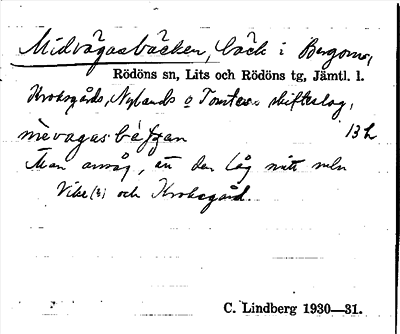 Midvågasbäcken, bäck i Bergomr,
Rödöns sn, Lits och Rödöns tg, Jämtl. l.
Kroksgårds, Nylands o Tomtens skifteslag,
mèvagasbä́ꞩan 13h
Man ansåg, att den låg mitt mln
Vike (3) och Kroksgård.
C. Lindberg 1930—31.